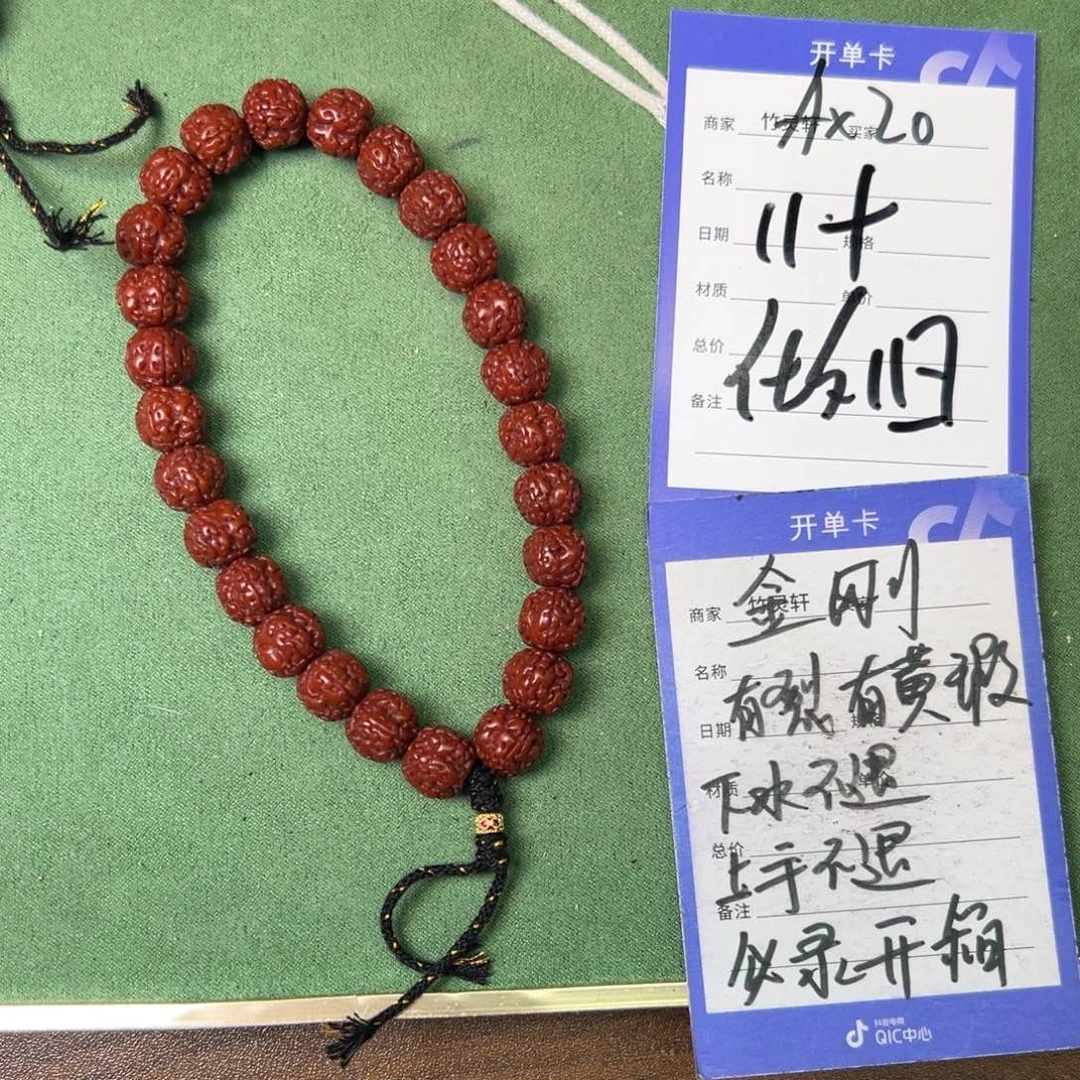 开单卡
商家 竹灵轩 买家
A×20
名称
11十
日期 规格
材质 单价
做旧
总价
备注
开单卡
金刚
商家 竹灵轩
名称
有裂有黄瑕
日期 规格
下水不退
材质 单价
总价
上手不退
备注
必录开箱
抖音电商
QIC中心